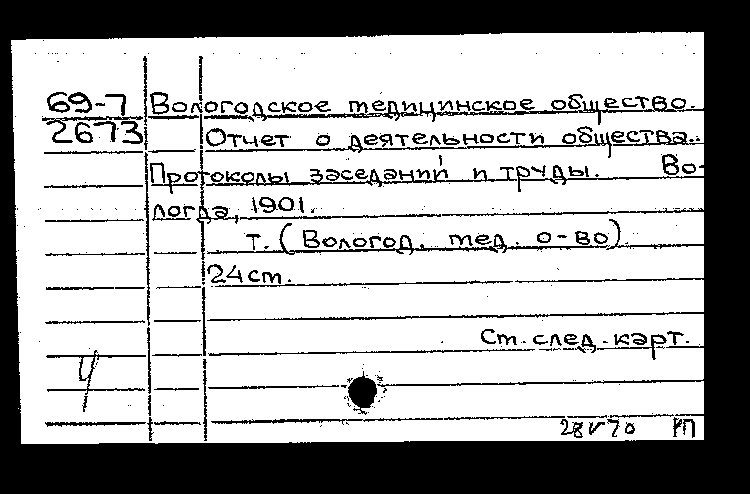 69-7 Вологодское медицинское общество.
2673 Отчет о деятельности общества..
Протоколы заседаний и труды. Во-
логда, 1901.
т. (Вологод. мед. о-во)
24 см.
См. след. карт.
28 V 70 РП